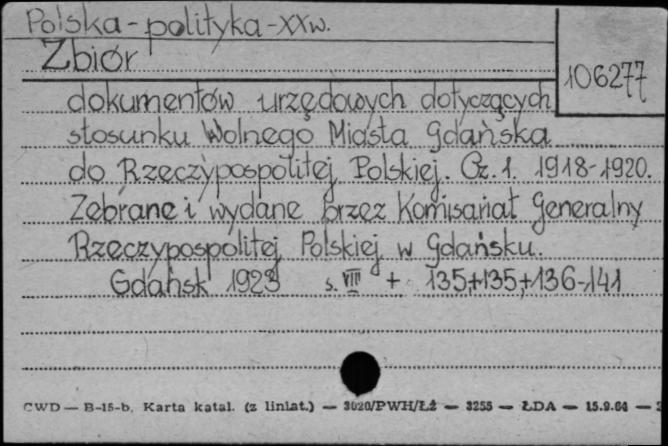 Polska-polityka-XXw.
Zbiór
106277
dokumentów urzędowych dotyczących
stosunku Wolnego Miasta Gdańska
do Rzeczypospolitej Polskiej. Cz. 1. 1918-1920.
Zebrane i wydane przez Komisariat Generalny
Rzeczypospolitej Polskiej w Gdańsku.
Gdańsk 1923 s. VIII + 135+135+136-141
CWD — B-15-b. Karta katal. (z liniat.) — 3020/PWH/ŁŻ — 3255 — ŁDA — 15.9.64 —